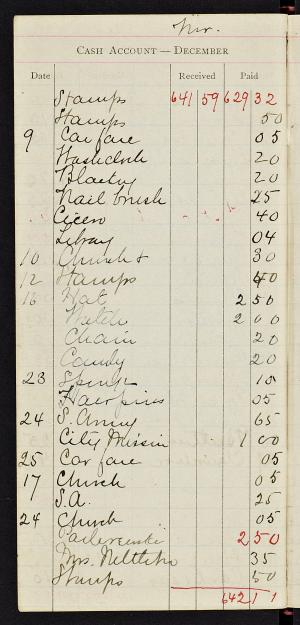 Nov.
CASH ACCOUNT — DECEMBER
Date Received Paid
Stamps 641 59 629 32
Stamps 50
9 Car fare 05
Washcloth 20
Blacking 20
Nail brush 25
Cicero 40
Library 04
10 Church + 30
12 Stamps 40
16 Hat 2 50
Watch 2 00
Chain 20
Candy 20
23 10
Hairpins 05
24 S. Army 65
City Mission 1 00
25 Car fare 05
17 Church 05
S.A. 25
24 Church 05
Paderewski 2 50
Mrs. 35
Stamps 50
642 11